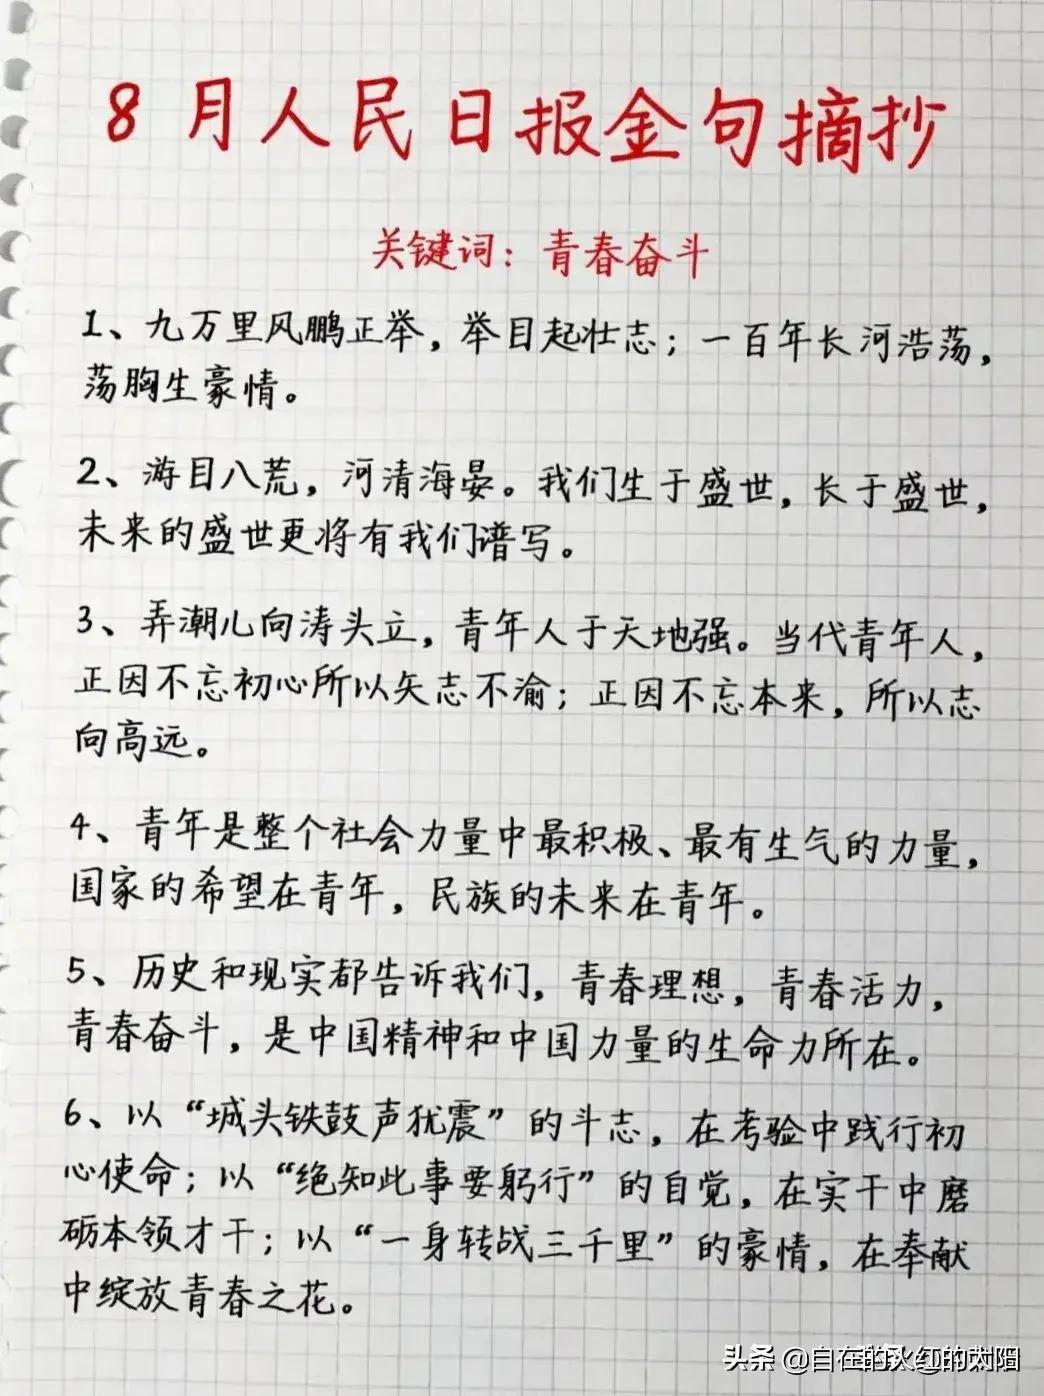 8月人民日报金句摘抄
关键词：青春奋斗
1、九万里风鹏正举，举目起壮志；一百年长河浩荡，
荡胸生豪情。
2、游目八荒，河清海晏。我们生于盛世，长于盛世，
未来的盛世更将有我们谱写。
3、弄潮儿向涛头立，青年人于天地强。当代青年人，
正因不忘初心所以矢志不渝；正因不忘本来，所以志
向高远。
4、青年是整个社会力量中最积极、最有生气的力量，
国家的希望在青年，民族的未来在青年。
5、历史和现实都告诉我们，青春理想，青春活力，
青春奋斗，是中国精神和中国力量的生命力所在。
6、以“城头铁鼓声犹震”的斗志，在考验中践行初
心使命；以“绝知此事要躬行”的自觉，在实干中磨
砺本领才干；以“一身转战三千里”的豪情，在奉献
中绽放青春之花。
头条 @自在的火红的太阳